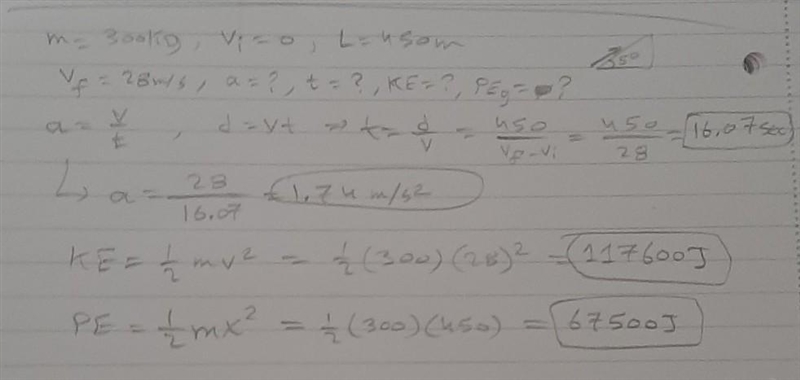 m = 300kg, Vi = 0, L = 450m
Vf = 28m/s, a = ?, t = ?, KE = ?, PEg = ?
a = V/t, d = vt ⇒ t = d/v = 450/(Vf - Vi) = 450/28 = 16.07sec
↳ a = 28/16.07 = 1.74 m/s²
KE = 1/2 mv² = 1/2 (300) (28)² = 117600J
PE = 1/2 mx² = 1/2 (300) (450) = 67500J